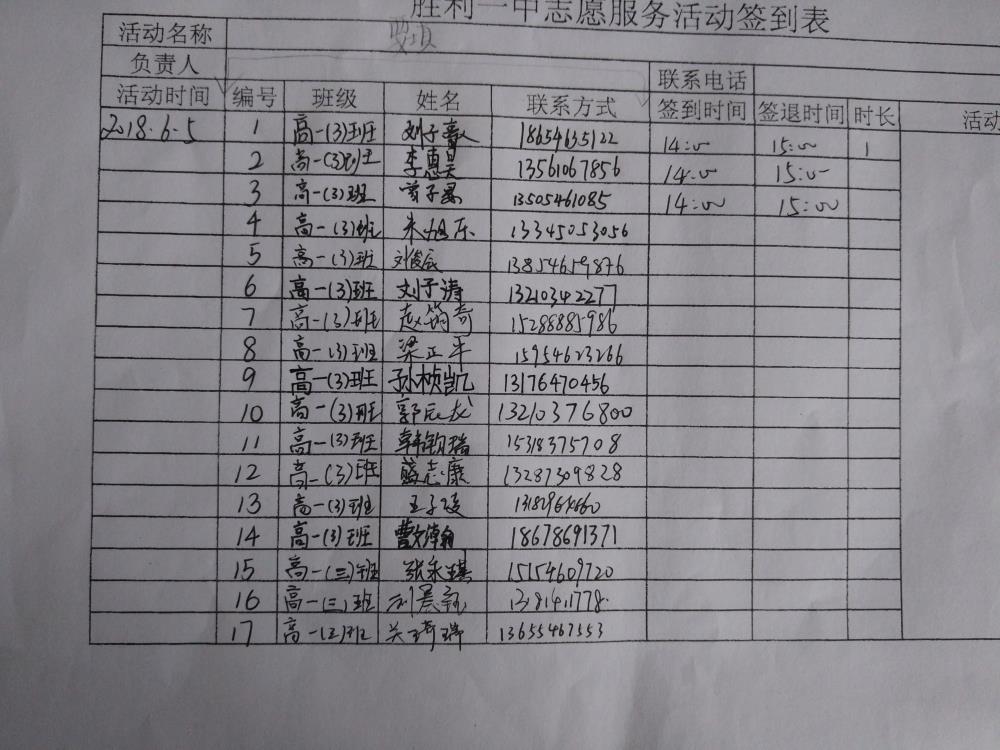 胜利一中志愿服务活动签到表
活动名称
负责人 联系电话
活动时间 编号 班级 姓名 联系方式 签到时间 签退时间 时长 活动
2018.6.5 1 高一(3)班 刘子豪 18654635122 14:00 15:00 1
2 高一(3)班 李惠昊 13561067856 14:00 15:00
3 高一(3)班 曾子晏 13505461085 14:00 15:00
4 高一(3)班 朱旭东 13345053056
5 高一(3)班 刘俊辰 13854659876
6 高一(3)班 刘子涛 13210342277
7 高一(3)班 赵筠奇 15288885986
8 高一(3)班 梁正平 15954623266
9 高一(3)班 孙桢凯 13176470456
10 高一(3)班 郭辰龙 13210376800
11 高一(3)班 韩钦瑞 15318375708
12 高一(3)班 盛志康 13287309828
13 高一(3)班 王子
14 高一(3)班 曹 18678691371
15 高一(三)班 张永琪 15154609720
16 高一(三)班 刘晨
17 高一(三)班 关琦瑞 13655467553